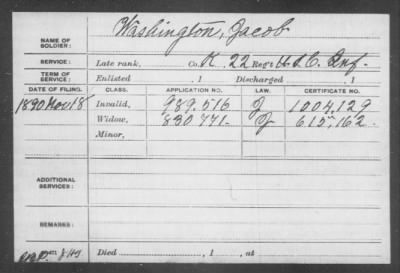 NAME OF SOLDIER: Washington, Jacob
SERVICE: Late rank, Co. K. 22 Reg't U.S.C. Inf.
TERM OF SERVICE: Enlisted , 1 Discharged , 1
DATE OF FILING. CLASS. APPLICATION NO. LAW. CERTIFICATE NO.
1890 Nov 18 Invalid, 989.516 J 1004,129
Widow, 830.771- J 615,162.
Minor,
ADDITIONAL SERVICES:
REMARKS:
Died , 1 , at